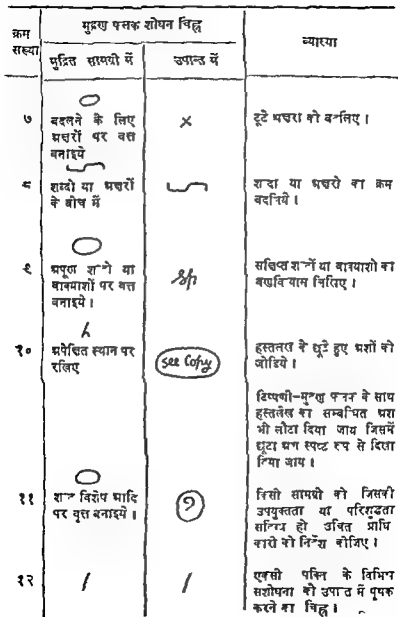 क्रम संख्या
मुद्रण फलक शोधन चिह्न
व्याख्या
मुद्रित सामग्री में
उपान्त में
७
बदलने के लिए
अक्षरों पर वृत्त
बनाइये
×
टूटे अक्षरों को बदलिए।
८
शब्दों या अक्षरों
के बीच में
शब्दों या अक्षरों का क्रम
बदलिये।
९
अपूर्ण शब्दों या
वाक्यांशों पर वृत्त
बनाइये।
sp
संक्षिप्त शब्दों या वाक्यांशों का
वर्णविन्यास लिखिए।
१०
अपेक्षित स्थान पर
रखिए
see Copy
हस्तलेख के छूटे हुए अंशों को
जोड़िये।
टिप्पणी–मुद्रण फलक के साथ
हस्तलेख का सम्बंधित अंश
भी लौटा दिया जाय जिसमें
छूटा अंश स्पष्ट रूप से दिखा
दिया जाय।
११
शब्द विशेष आदि
पर वृत्त बनाइये।
?
किसी सामग्री को जिसकी
उपयुक्तता या परिशुद्धता
संदिग्ध हो उचित प्राधि
कारी को निर्देश कीजिए।
१२
/
/
एक ही पंक्ति के विभिन्न
संशोधनों को उपांत में पृथक
करने का चिह्न।